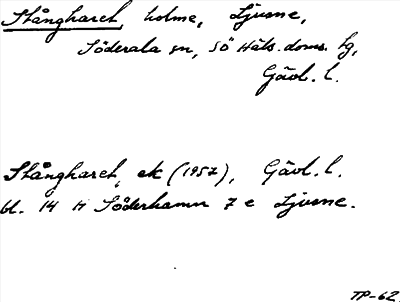 Stångharet, holme, Ljusne,
Söderala sn, Sö Häls. doms. tg,
Gävl. l.
Stångharet, ek (1957), Gävl. l.
bl. 14 H Söderhamn 7 e Ljusne.
TP-62